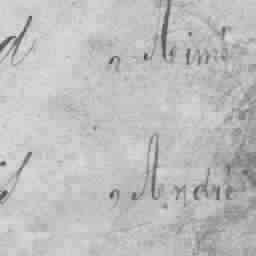 d „ Aimé
d „ André